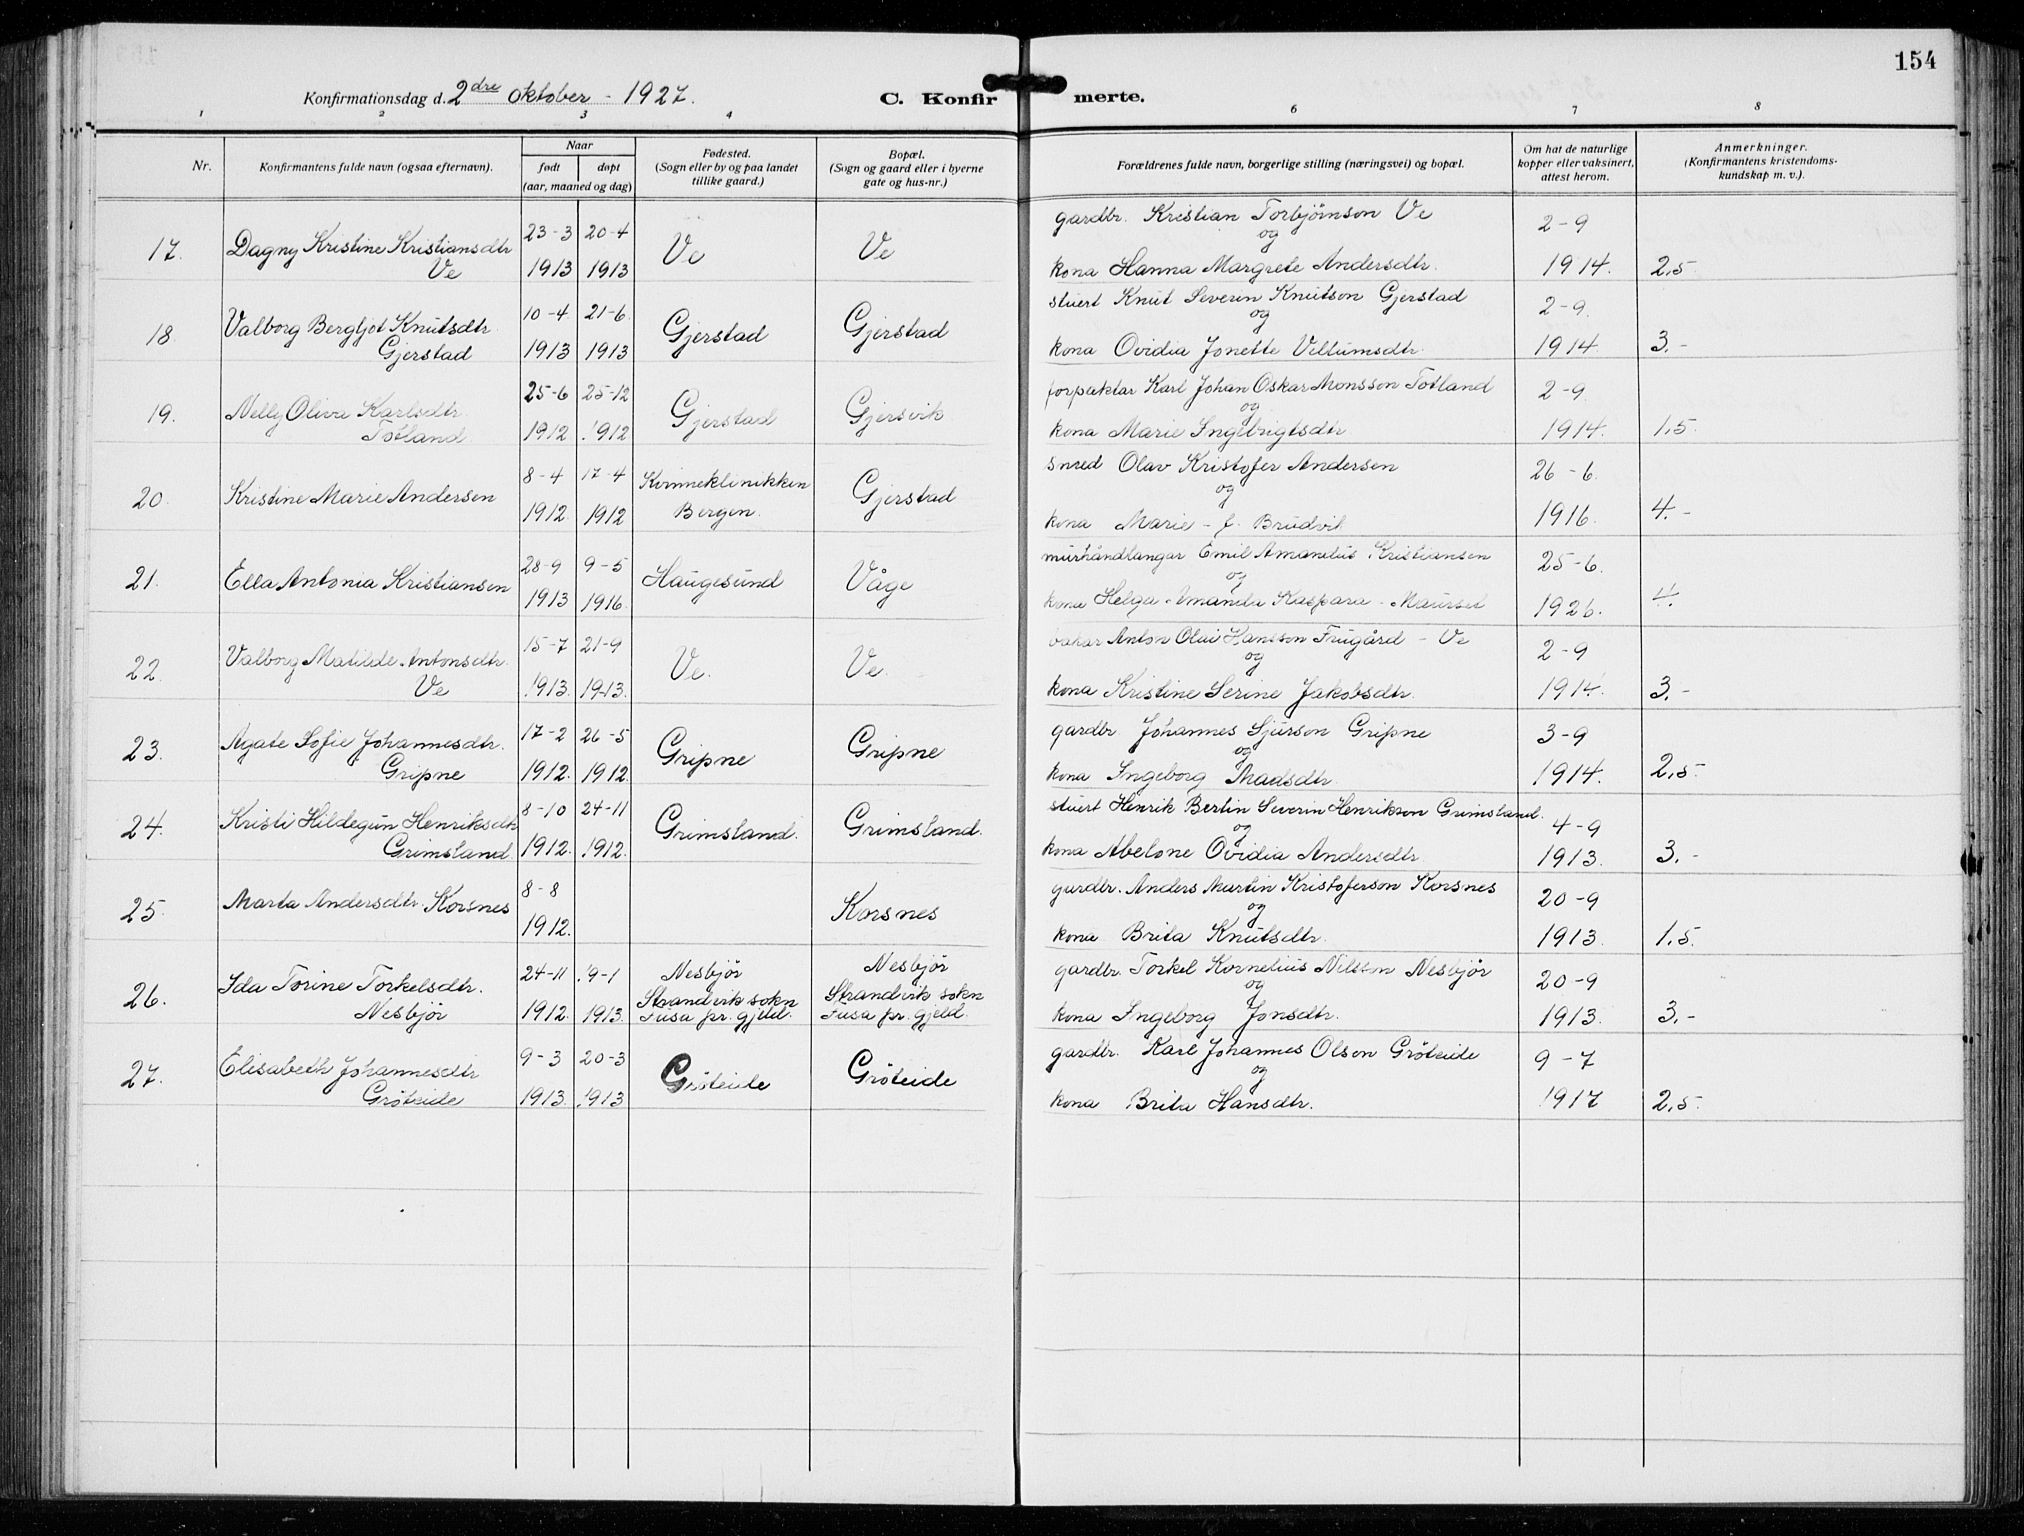 154
Konfirmationsdag d. 2dre oktober - 1927.
C. Konfirmerte.
1 2 3 4 5 6 7 8
Nr.
Konfirmantens fulde navn (ogsaa efternavn).
Naar
født døpt
(aar, maaned og dag)
Fødested.
(Sogn eller by og paa landet
tillike gaard.)
Bopæl.
(Sogn og gaard eller i byerne
gate og hus-nr.)
Forældrenes fulde navn, borgerlige stilling (næringsvei) og bopæl.
Om hat de naturlige
kopper eller vaksinert,
attest herom.
Anmerkninger.
(Konfirmantens kristendoms-
kundskap m. v.).
17. Dagny Kristine Kristiansdtr 23-3 20-4 Ve Ve gardbr. Kristian Torbjörnson Ve 2-9
og
Ve 1913 1913 kona Hanna Margrete Andersdtr. 1914. 2,5
18 Valborg Bergljot Knutsdtr. 10-4 21-6 Gjerstad Gjerstad stuert Knut Severin Knutson Gjerstad 2-9.
og
Gjerstad 1913 1913 kona Ovidia Jonette Viltumsdtr. 1914 3.-
19. Nelly Olive Karlsdtr. 25-6 25-12 Gjerstad Gjersvik forpaktar Karl Johan Oskar Monsson Totland 2-9.
og
Totland 1912 1912 kona Marie Ingebrigtsdtr 1914. 1,5.
20 Kristine Marie Andersen 8-4 17-4 Kvinneklinikken Gjerstad snred Olav Kristofer Andersen 26-6.
og
1912 1912 Bergen. kona Marie - f. Brudvik 1916. 4.-
21. Ella Antonia Kristiansen 28-9 9-5 Haugesund Våge murhåndlangar Emil Amandus Kristiansen 25-6.
og
1913 1916. kona Helga Amanda Kaspara - Maurset 1926. 4.
22. Valborg Matilde Antonsdtr. 15-7 21-9 Ve. Ve. bakar Anton Olai Hansson Frugård - Ve 2-9
og
Ve 1913. 1913. kona Kristine Serine Jakobsdtr. 1914. 3.-
23. Agate Sofie Johannesdtr. 17-2 26-5 Gripne Gripne gardbr. Johannes Sjurson Gripne 3-9
og
Gripne 1912. 1912. kona Ingeborg Madsdtr. 1914. 2,5.
24. Kristi Hildegun Henriksdtr 8-10 24-11 Grimsland. Grimsland. stuert Henrik Bertin Severin Henrikson Grimsland. 4-9
og
Grimsland 1912. 1912. kona Abelone Ovidia Andersdtr 1913. 3.-
25. Marta Andersdtr. Korsnes 8-8 Korsnes gardbr. Anders Martin Kristoferson Korsnes 20-9
og
1912. kona Brita Knutsdtr. 1913. 1,5.
26. Ida Torine Torkelsdtr. 24-11 19-1 Nesbjør Nesbjør gardbr. Torkel Kornelius Nilsson Nesbjör 20-9
Strandvik sokn Strandvik sokn og
Nesbjör 1912. 1913. Fusa pr.gjeld. Fusa pr.gjeld. kona Ingeborg Jonsdtr. 1913. 3.-
27. Elisabeth Johannesdtr 9-3 20-3 Gröteide Gröteide gardbr. Karl Johannes Olson Gröteide 9-7
og
Gröteide 1913. 1913 kona Brita Hansdtr. 1917 2,5.